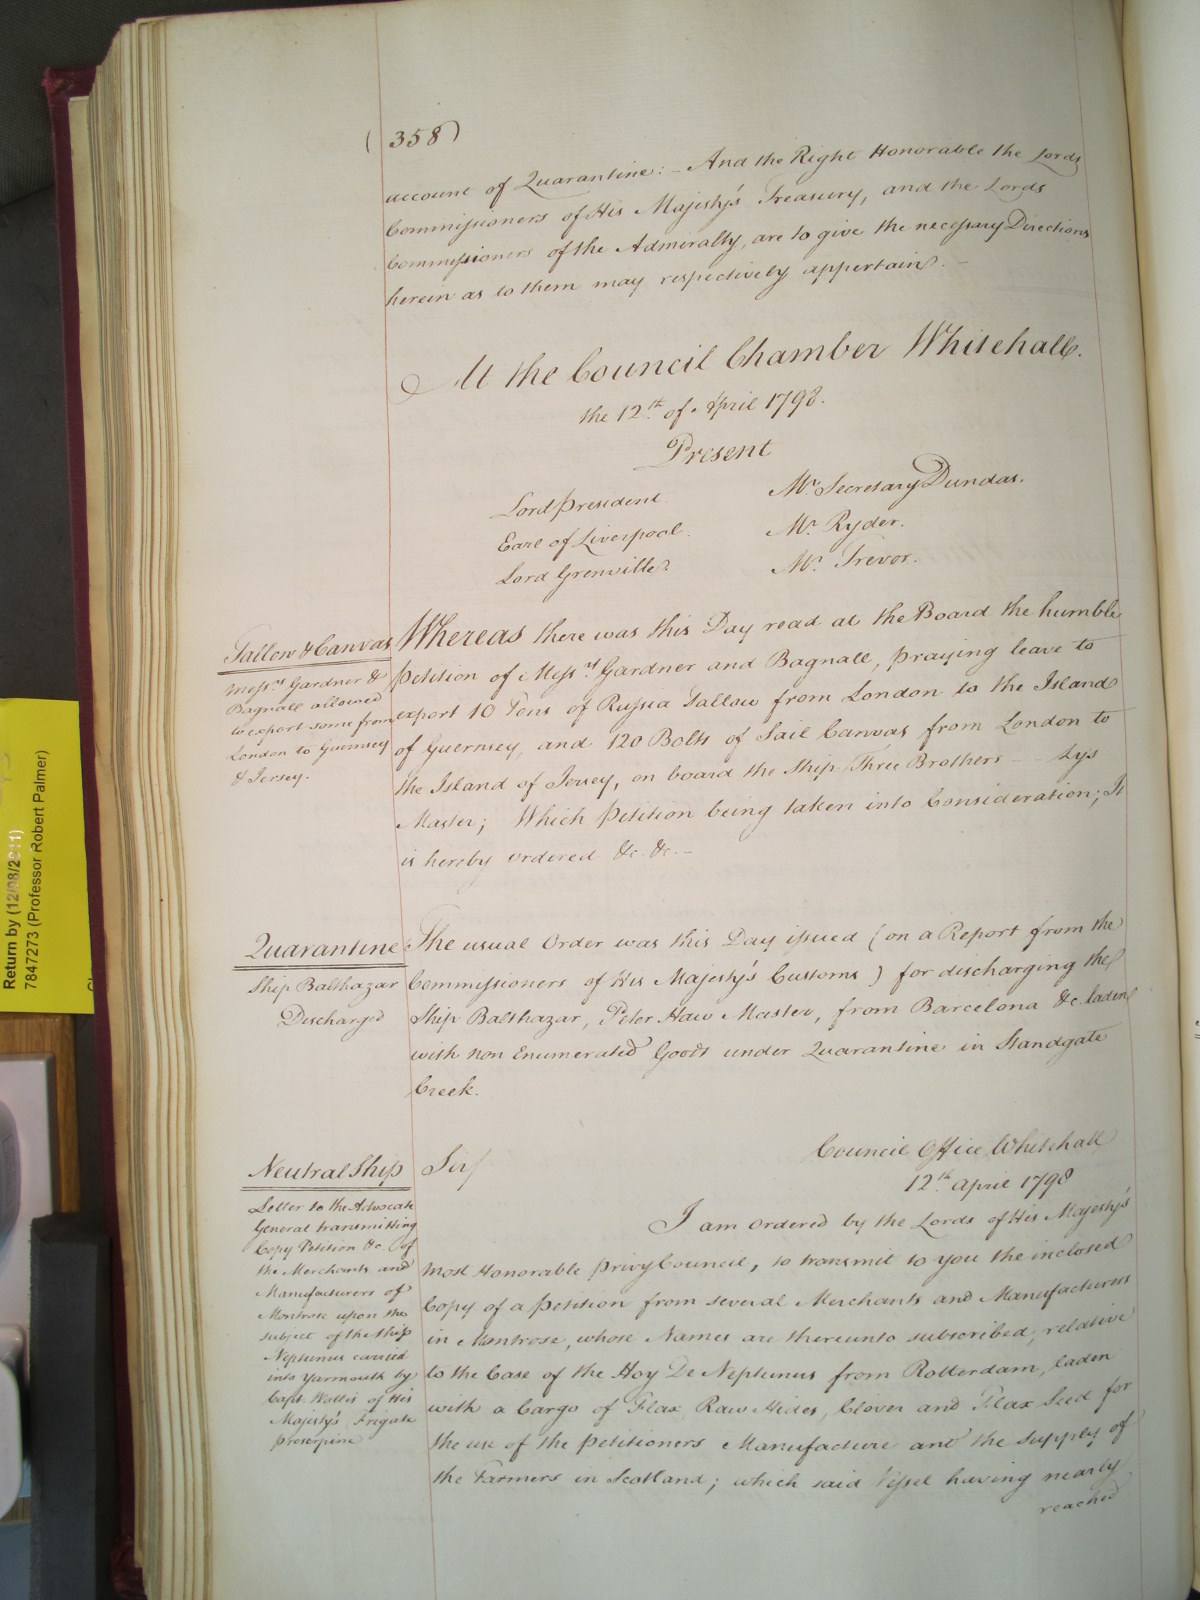 (358)
account of Quarantine: – And the Right Honorable the Lords
Commissioners of His Majesty's Treasury, and the Lords
Commissioners of the Admiralty, are to give the necessary Directions
herein as to them may respectively appertain. –
At the Council Chamber Whitehall.
the 12th of April 1798.
Present
Lord President Mr. Secretary Dundas.
Earl of Liverpool. Mr. Ryder.
Lord Grenville Mr. Trevor.
Tallow & Canvas
Messrs. Gardner &
Bagnall allowed
to export some from
London to Guernsey
& Jersey.
Whereas there was this Day read at the Board the humble
Petition of Messrs. Gardner and Bagnall, praying leave to
export 10 Tons of Russia Tallow from London to the Island
of Guernsey, and 120 Bolts of Sail Canvas from London to
the Island of Jersey, on board the Ship Three Brothers – – Lys
Master; Which Petition being taken into Consideration; It
is hereby ordered &c. &c. –
Quarantine
Ship Balthazar
Discharged
The usual Order was this Day issued (on a Report from the
Commissioners of His Majesty's Customs) for discharging the
Ship Balthazar, Peter Haw Master, from Barcelona &c. laden
with non Enumerated Goods under Quarantine in Standgate
Creek.
Neutral Ship
Letter to the Advocate
General transmitting
Copy Petition &c. of
the Merchants and
Manufacturers of
Montrose upon the
subject of the ship
Neptunus carried
into Yarmouth by
Capt. Wallis of His
Majesty's Frigate
Proserpine
Council Office, Whitehall
Sir/ 12th April 1798
I am ordered by the Lords of His Majesty's
most Honorable Privy Council, to transmit to you the inclosed
Copy of a Petition from several Merchants and Manufacturers
in Montrose, whose Names are thereunto subscribed, relative
to the Case of the Hoy De Neptunus from Rotterdam, laden
with a Cargo of Flax, Raw Hides, Clover and Flax Seed for
the use of the Petitioners Manufacture and the supply of
the Farmers in Scotland; which said Vessel having nearly
reached
Return by (12/08/2011)
7847273 (Professor Robert Palmer)